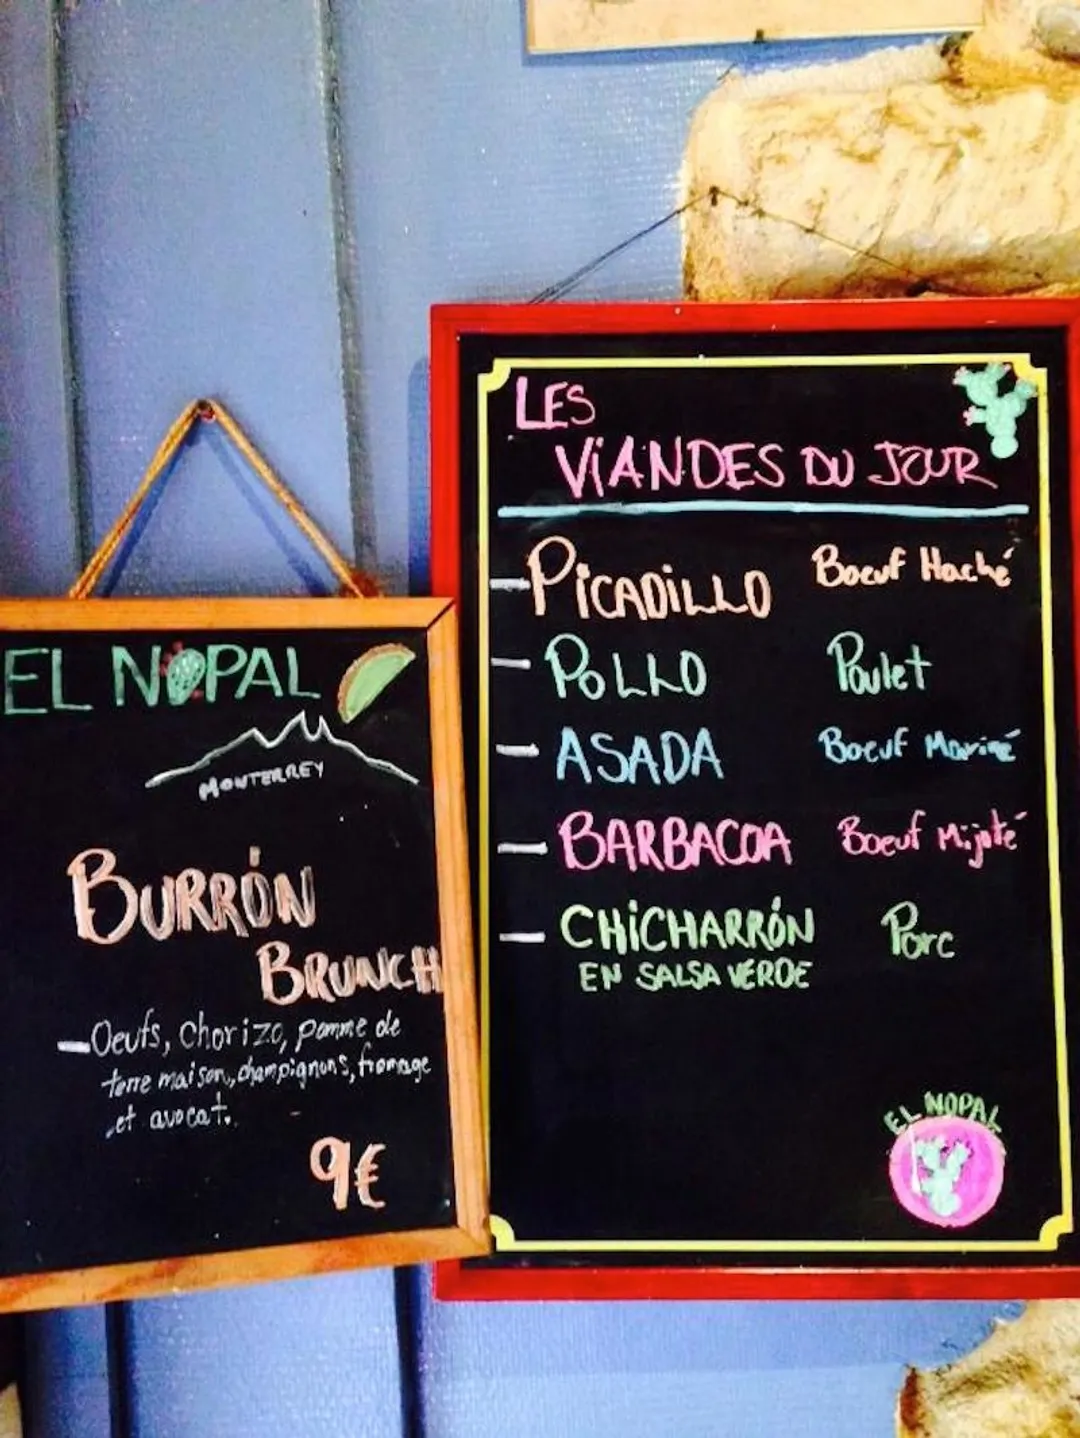 EL NOPAL
MONTERREY
BURRÓN
BRUNCH
- Oeufs, Chorizo, pomme de
terre maison, champignons, fromage
et avocat.
9€
LES
VIANDES DU JOUR
- PICADILLO Boeuf Haché
- POLLO Poulet
- ASADA Boeuf Mariné
- BARBACOA Boeuf Mijoté
- CHICHARRÓN Porc
EN SALSA VERDE
EL NOPAL